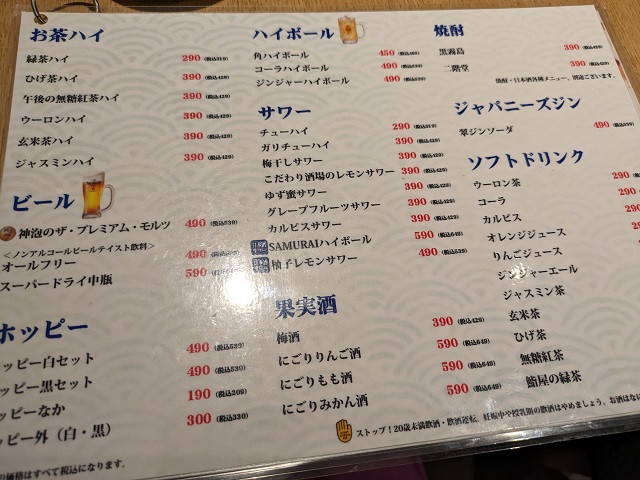 お茶ハイ
緑茶ハイ 290 (税込319)
ひげ茶ハイ 390 (税込429)
午後の無糖紅茶ハイ 390 (税込429)
ウーロンハイ 390 (税込429)
玄米茶ハイ 390 (税込429)
ジャスミンハイ 390 (税込429)
ビール
神泡のザ・プレミアム・モルツ 490 (税込539)
<ノンアルコールビールテイスト飲料>
オールフリー 490
スーパードライ中瓶 590
ホッピー
ッピー白セット 490 (税込539)
ッピー黒セット 490 (税込539)
ッピーなか 190 (税込209)
ッピー外(白・黒) 300 (税込330)
価格はすべて税込になります。
ハイボール
角ハイボール 450
コーラハイボール 490 (税込539)
ジンジャーハイボール 490 (税込539)
サワー
チューハイ 290 (税込319)
ガリチューハイ 390 (税込429)
梅干しサワー 390 (税込429)
こだわり酒場のレモンサワー 390 (税込429)
ゆず蜜サワー 390 (税込429)
グレープフルーツサワー 390 (税込429)
カルピスサワー 390 (税込429)
SAMURAIハイボール 590 (税込649)
柚子レモンサワー 490
果実酒
梅酒 390 (税込429)
にごりりんご酒 590 (税込649)
にごりもも酒 590 (税込649)
にごりみかん酒 590 (税込649)
焼酎
黒霧島 390 (税込429)
二階堂 390 (税込429)
焼酎・日本酒各種メニュー、別途ございます。
ジャパニーズジン
翠ジンソーダ 490 (税込539)
ソフトドリンク
ウーロン茶 290
コーラ 290
カルピス 290
オレンジジュース
りんごジュース
ジンジャーエール
ジャスミン茶
玄米茶
ひげ茶
無糖紅茶
鮨屋の緑茶
ストップ!20歳未満飲酒・飲酒運転。妊娠中や授乳期の飲酒はやめましょう。お酒はなに